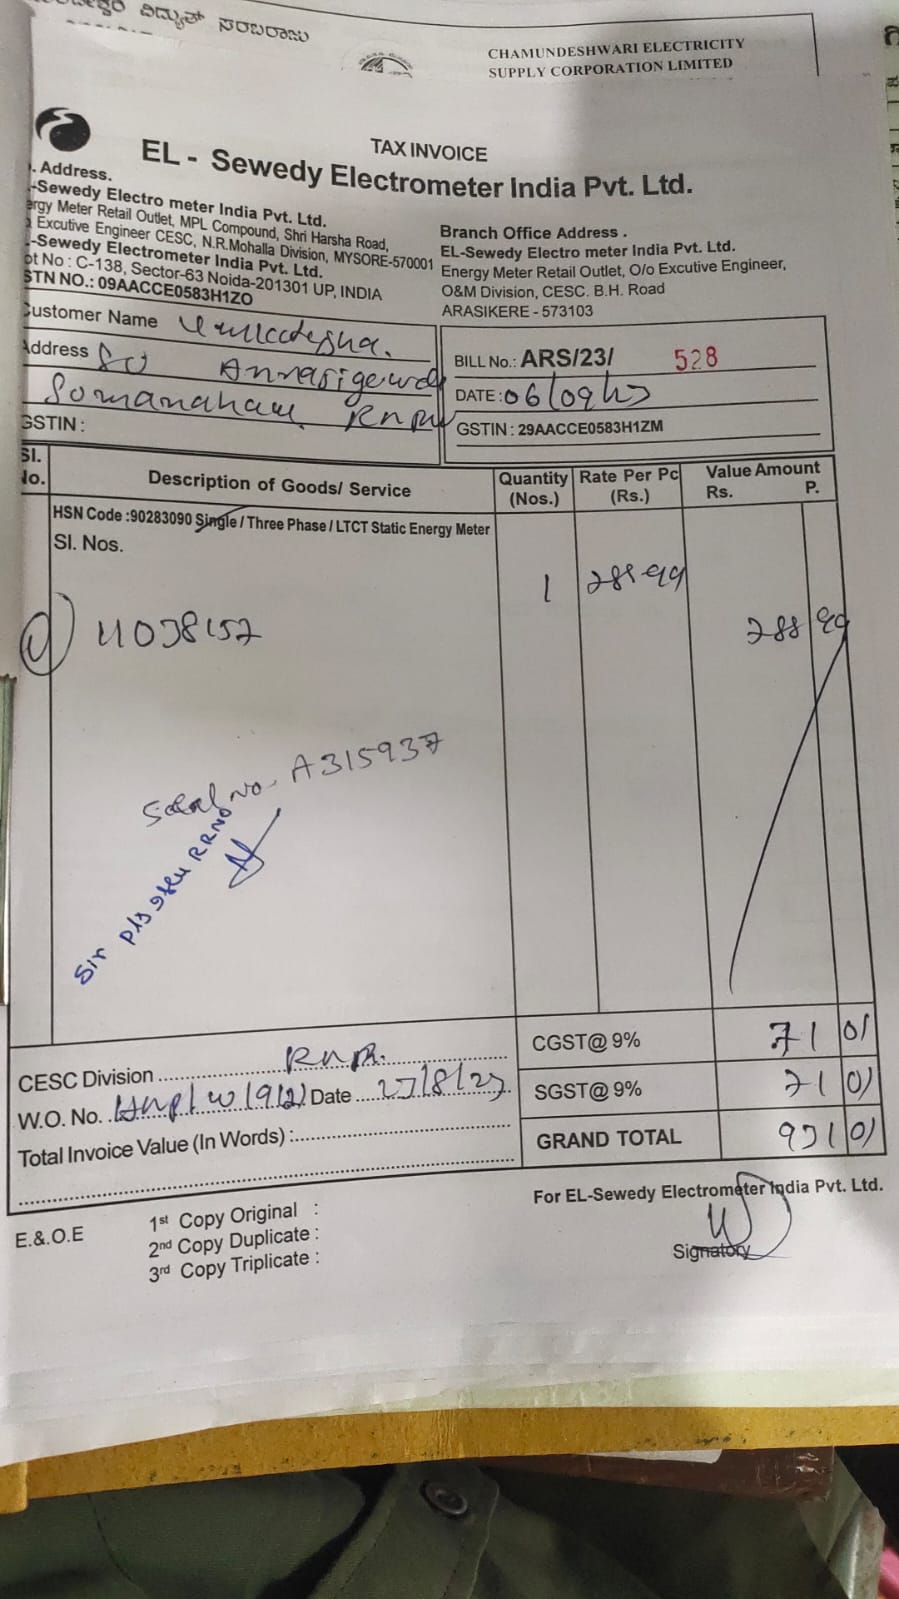 ವಿದ್ಯುತ್ ಸರಬರಾಜು
CHAMUNDESHWARI ELECTRICITY
SUPPLY CORPORATION LIMITED
TAX INVOICE
EL - Sewedy Electrometer India Pvt. Ltd.
. Address.
-Sewedy Electro meter India Pvt. Ltd.
ergy Meter Retail Outlet, MPL Compound, Shri Harsha Road,
Excutive Engineer CESC, N.R.Mohalla Division, MYSORE-570001
-Sewedy Electrometer India Pvt. Ltd.
ot No : C-138, Sector-63 Noida-201301 UP, INDIA
STN NO.: 09AACCE0583H1ZO
Branch Office Address .
EL-Sewedy Electro meter India Pvt. Ltd.
Energy Meter Retail Outlet, O/o Excutive Engineer,
O&M Division, CESC. B.H. Road
ARASIKERE - 573103
Customer Name
Address
GSTIN :
BILL No.: ARS/23/ 528
DATE : 06/09/23
GSTIN : 29AACCE0583H1ZM
Sl. No. Description of Goods/ Service Quantity (Nos.) Rate Per Pc (Rs.) Value Amount Rs. P.
HSN Code :90283090 Single / Three Phase / LTCT Static Energy Meter
Sl. Nos.
1 788-99
788 99
Serial No. A315937
Sir pls RRNO
CESC Division RNPR.
W.O. No. Date
Total Invoice Value (In Words) :
CGST@ 9% 71 01
SGST@ 9% 71 01
GRAND TOTAL 931 01
For EL-Sewedy Electrometer India Pvt. Ltd.
Signatory
E.&.O.E
1st Copy Original :
2nd Copy Duplicate :
3rd Copy Triplicate :